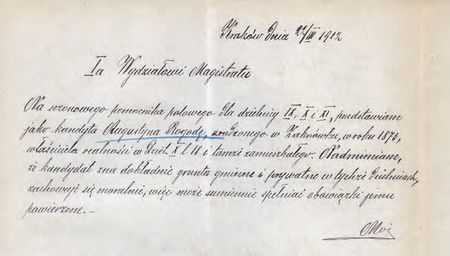 Kraków dnia 29/III 1912
Ia Wydziałowi Magistratu
Na sezonowego pomocnika polowego dla dzielnicy IX, X i XI, przedstawiam
jako kandyta Augustyna Rogodę, urodzonego w Zakrzówku, w roku 1870,
właściciela realności w Dziel. X l. 18. i tamże zamieszkałego. Nadmieniam,
że kandydat zna dokładnie grunta gminne i prywatne w tychże dzielnicach,
zachowuje się moralnie, więc może sumiennie spełniać obowiązki jemu
powierzone. –